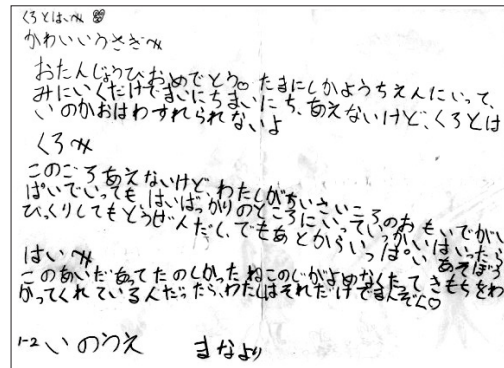 くろとはいへ
かわいいうさぎへ
おたんじょうびおめでとう。たまにしかようちえんにいって、
みにいくだけでまいにちまいにち、あえないけど、くろとは
いのかおはわすれられないよ
くろへ
このごろあえないけど、わたしがちいさいころのおもいでがい
ぱいでいっても、はいばっかりのところにいっていっかいはいったら
びっくりしてもとうぜんだし、でもあとからいっぱいあそぼう
はいへ
このあいだあってたのしかったねこのじがよめなくたって、きもちをわ
かってくれているんだったら、わたしはそれだけでまんぞく♡
1-2 いのうえ まなより